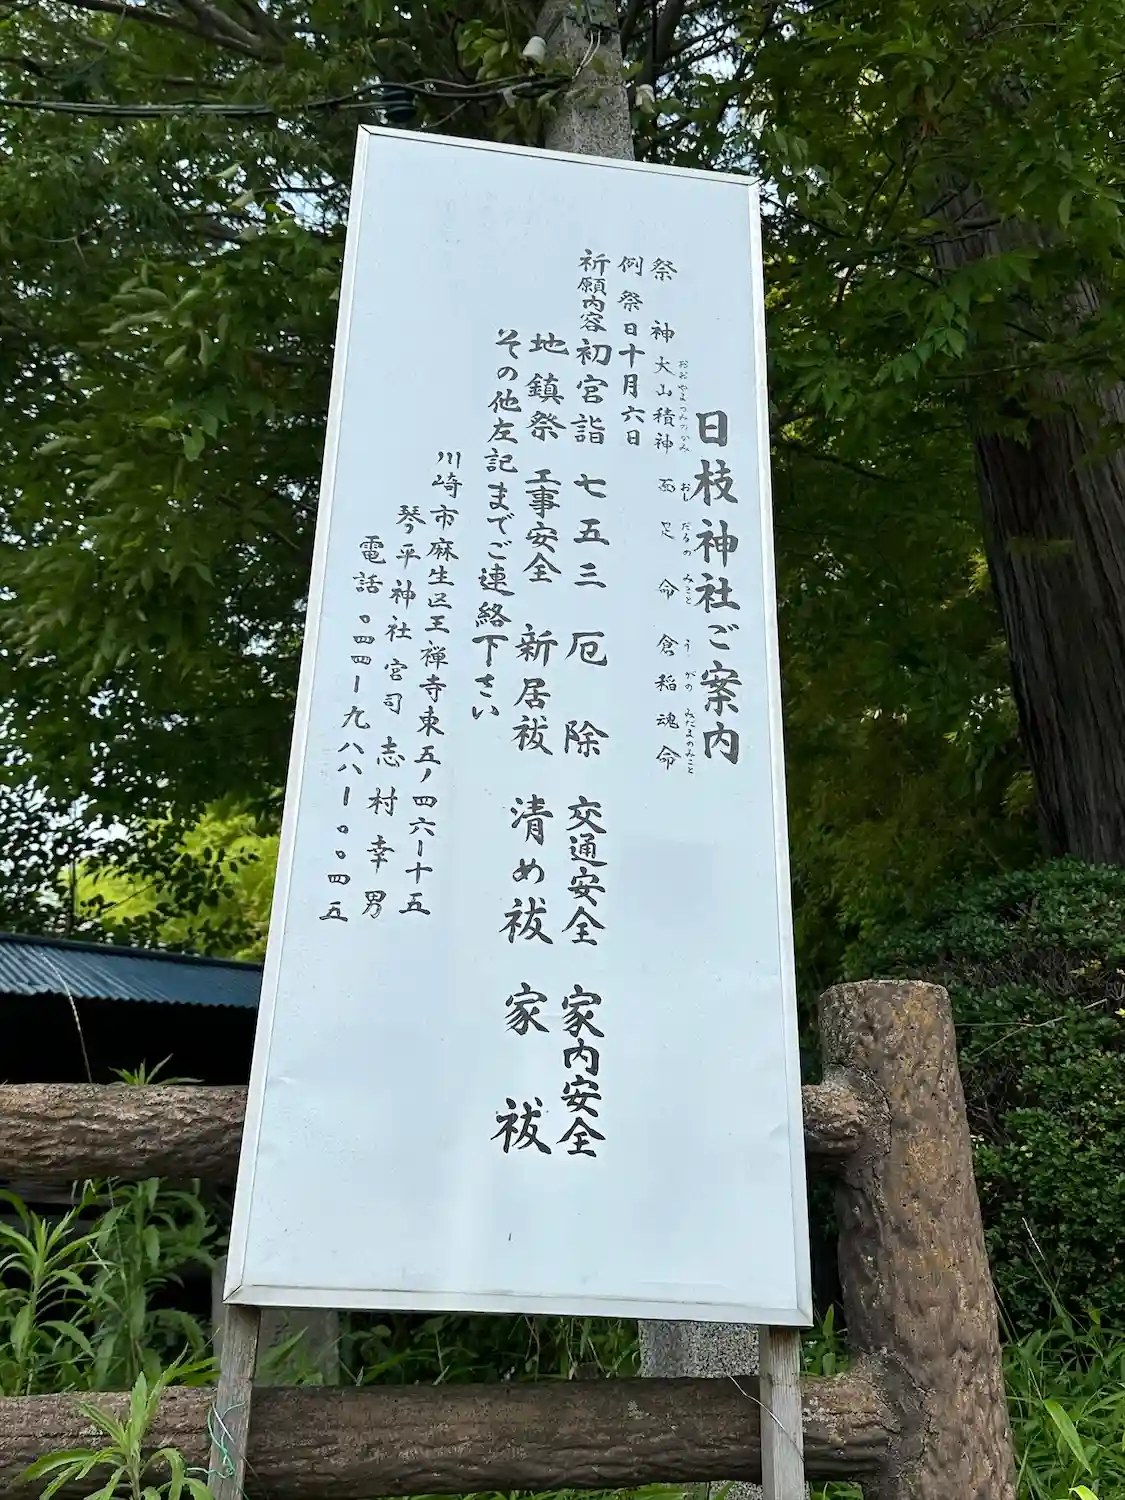 日枝神社ご案内
祭神 大山積神 面足命 倉稲魂命
おおやまつみのかみ おしだるのみこと うがのみだまのみこと
例祭日 十月六日
祈願内容 初宮詣 七五三 厄除 交通安全 家内安全
地鎮祭 工事安全 新居祓 清め祓 家祓
その他左記までご連絡下さい
川崎市麻生区王禅寺東五ノ四六ー十五
琴平神社宮司 志村幸男
電話〇四四ー九八八ー〇〇四五